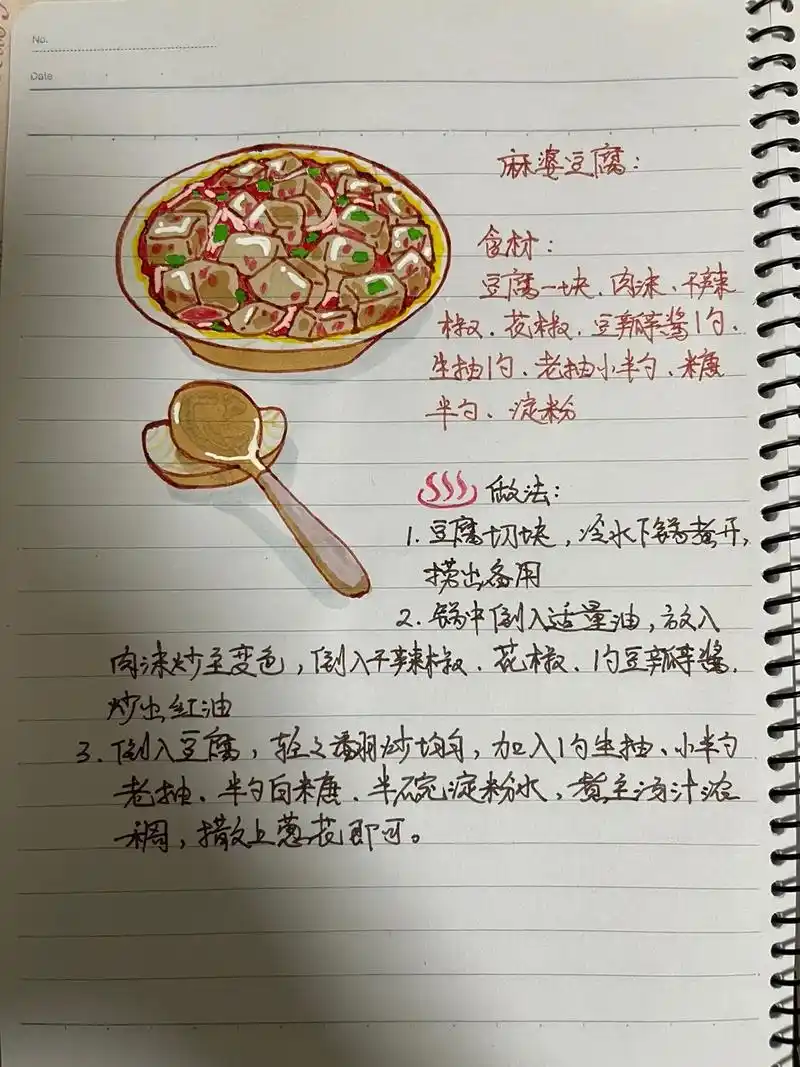 No.
Date
麻婆豆腐:
食材:
豆腐一块、肉沫、干辣
椒、花椒、豆瓣酱1勺、
生抽1勺、老抽小半勺、糖
半勺、淀粉
做法:
1. 豆腐切块,冷水下锅煮开,
捞出备用
2. 锅中倒入适量油,放入
肉沫炒至变色,倒入干辣椒、花椒、1勺豆瓣酱,
炒出红油
3. 倒入豆腐,轻轻翻炒均匀,加入1勺生抽、小半勺
老抽、半勺白糖、半碗淀粉水,煮至汤汁浓
稠,撒上葱花即可。